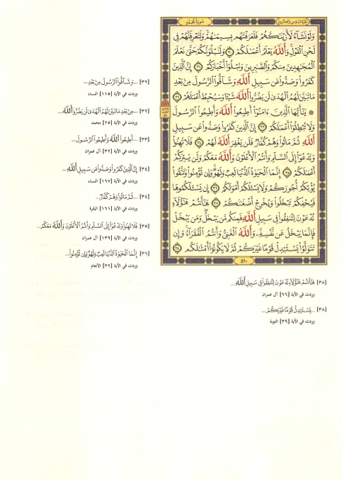 سُورَةُ مُحَمَّد
وَلَوْ نَشَآءُ لَأَرَيْنَٰكَهُمْ فَلَعَرَفْتَهُم بِسِيمَٰهُمْ وَلَتَعْرِفَنَّهُمْ فِى
لَحْنِ ٱلْقَوْلِ وَٱللَّهُ يَعْلَمُ أَعْمَٰلَكُمْ ٣٠ وَلَنَبْلُوَنَّكُمْ حَتَّىٰ نَعْلَمَ
ٱلْمُجَٰهِدِينَ مِنكُمْ وَٱلصَّٰبِرِينَ وَنَبْلُوَا۟ أَخْبَارَكُمْ ٣١ إِنَّ ٱلَّذِينَ
كَفَرُوا۟ وَصَدُّوا۟ عَن سَبِيلِ ٱللَّهِ وَشَآقُّوا۟ ٱلرَّسُولَ مِنۢ بَعْدِ
مَا تَبَيَّنَ لَهُمُ ٱلْهُدَىٰ لَن يَضُرُّوا۟ ٱللَّهَ شَيْـًٔا وَسَيُحْبِطُ أَعْمَٰلَهُمْ ٣٢
يَٰٓأَيُّهَا ٱلَّذِينَ ءَامَنُوٓا۟ أَطِيعُوا۟ ٱللَّهَ وَأَطِيعُوا۟ ٱلرَّسُولَ
وَلَا تُبْطِلُوٓا۟ أَعْمَٰلَكُمْ ٣٣ إِنَّ ٱلَّذِينَ كَفَرُوا۟ وَصَدُّوا۟ عَن سَبِيلِ
ٱللَّهِ ثُمَّ مَاتُوا۟ وَهُمْ كُفَّارٌ فَلَن يَغْفِرَ ٱللَّهُ لَهُمْ ٣٤ فَلَا تَهِنُوا۟
وَتَدْعُوٓا۟ إِلَى ٱلسَّلْمِ وَأَنتُمُ ٱلْأَعْلَوْنَ وَٱللَّهُ مَعَكُمْ وَلَن يَتِرَكُمْ
أَعْمَٰلَكُمْ ٣٥ إِنَّمَا ٱلْحَيَوٰةُ ٱلدُّنْيَا لَعِبٌ وَلَهْوٌ وَإِن تُؤْمِنُوا۟ وَتَتَّقُوا۟
يُؤْتِكُمْ أُجُورَكُمْ وَلَا يَسْـَٔلْكُمْ أَمْوَٰلَكُمْ ٣٦ إِن يَسْـَٔلْكُمُوهَا
فَيُحْفِكُمْ تَبْخَلُوا۟ وَيُخْرِجْ أَضْغَٰنَكُمْ ٣٧ هَٰٓأَنتُمْ هَٰٓؤُلَآءِ
تُدْعَوْنَ لِتُنفِقُوا۟ فِى سَبِيلِ ٱللَّهِ فَمِنكُم مَّن يَبْخَلُ وَمَن يَبْخَلْ
فَإِنَّمَا يَبْخَلُ عَن نَّفْسِهِۦ وَٱللَّهُ ٱلْغَنِىُّ وَأَنتُمُ ٱلْفُقَرَآءُ وَإِن
تَتَوَلَّوْا۟ يَسْتَبْدِلْ قَوْمًا غَيْرَكُمْ ثُمَّ لَا يَكُونُوٓا۟ أَمْثَٰلَكُم ٣٨
٥١٠
[٣٢] ...وَشَآقُّوا۟ ٱلرَّسُولَ مِنۢ بَعْدِ...
وردت في الآية [١١٥] النساء
[٣٢] ...مِنۢ بَعْدِ مَا تَبَيَّنَ لَهُمُ ٱلْهُدَىٰ لَن يَضُرُّوا۟ ٱللَّهَ...
وردت في الآية [٢٥] محمد
[٣٣] ...أَطِيعُوا۟ ٱللَّهَ وَأَطِيعُوا۟ ٱلرَّسُولَ...
[٣٤] إِنَّ ٱلَّذِينَ كَفَرُوا۟ وَصَدُّوا۟ عَن سَبِيلِ ٱللَّهِ...
وردت في الآية [١٦٧] النساء
[٣٤] ...ثُمَّ مَاتُوا۟ وَهُمْ كُفَّارٌ...
وردت في الآية [١٦١] البقرة
[٣٥] فَلَا تَهِنُوا۟ وَتَدْعُوٓا۟ إِلَى ٱلسَّلْمِ وَأَنتُمُ ٱلْأَعْلَوْنَ وَٱللَّهُ مَعَكُمْ...
وردت في الآية [١٣٩] آل عمران
[٣٦] إِنَّمَا ٱلْحَيَوٰةُ ٱلدُّنْيَا لَعِبٌ وَلَهْوٌ وَإِن تُؤْمِنُوا۟...
وردت في الآية [٣٢] الأنعام
[٣٨] هَٰٓأَنتُمْ هَٰٓؤُلَآءِ تُدْعَوْنَ لِتُنفِقُوا۟ فِى سَبِيلِ ٱللَّهِ...
وردت في الآية [٦٦] آل عمران
[٣٨] ...يَسْتَبْدِلْ قَوْمًا غَيْرَكُمْ...
وردت في الآية [٣٩] التوبة